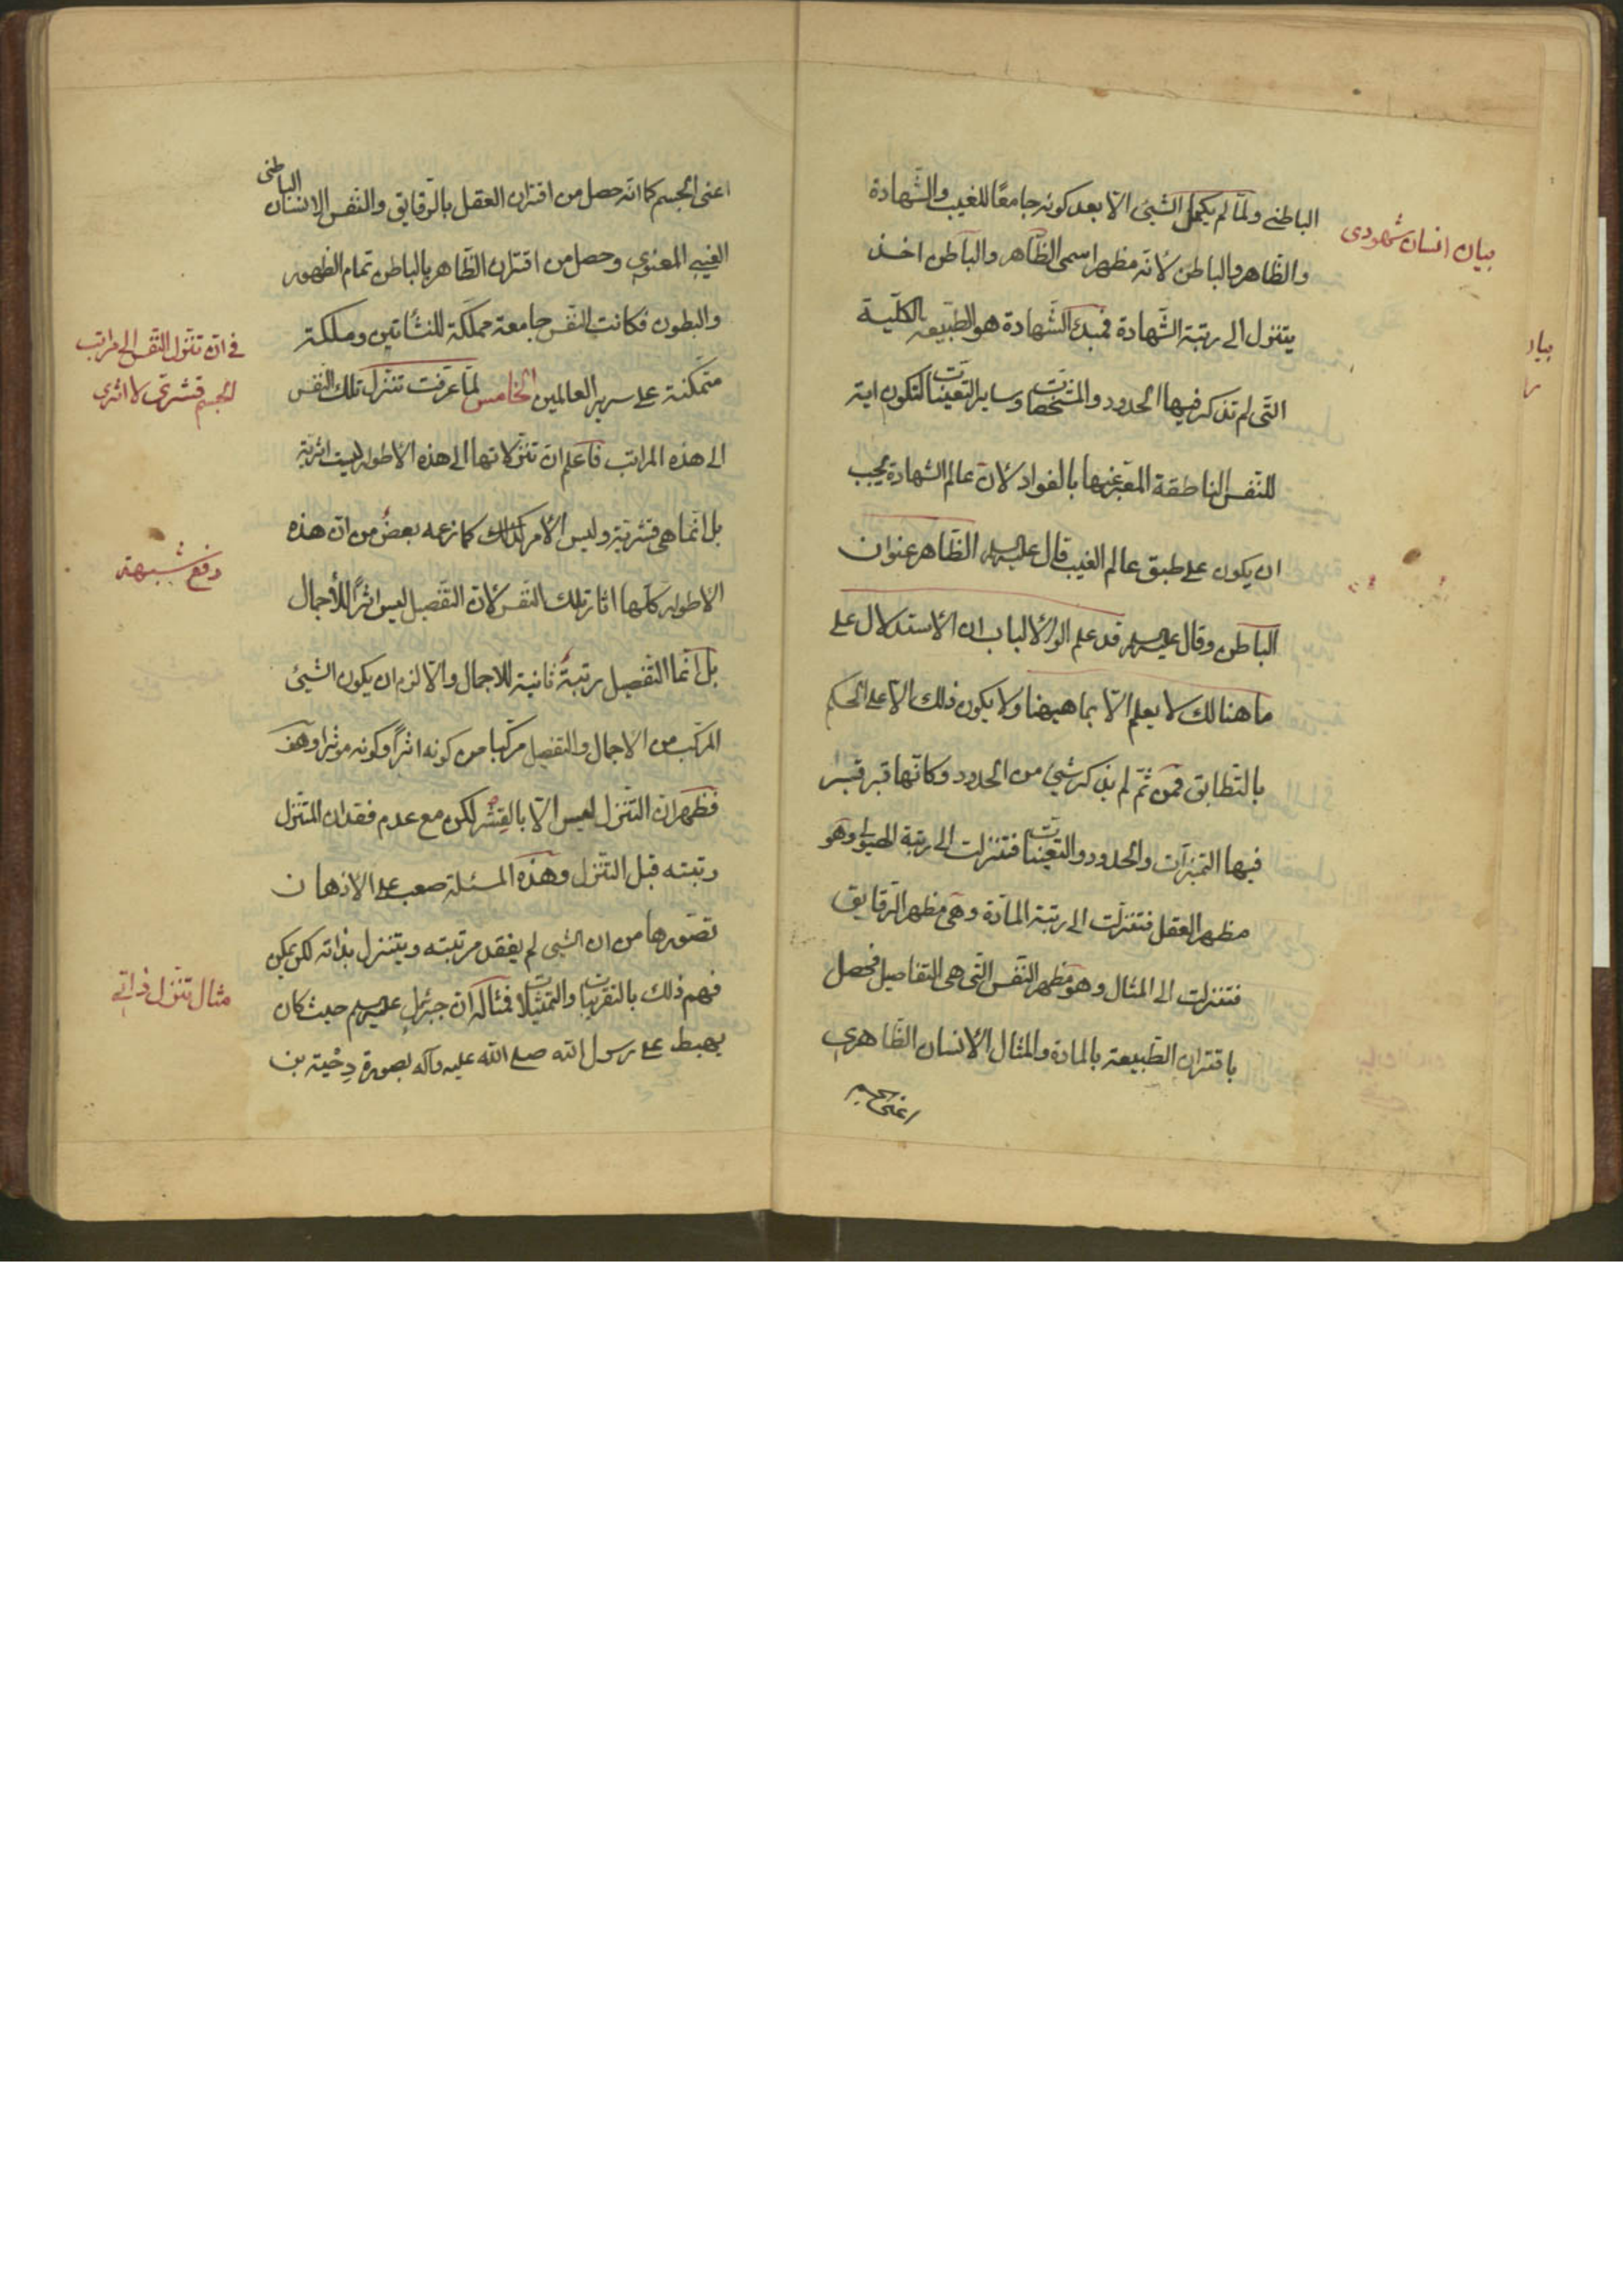 بيان انسان شهودی
الباطنے ولمّا لم يكمل الشيئ الّا بعد كونه جامعًا للغيب والشّهادة
والظّاهر والباطن لأنّه مظهر اسمی الظّاهر والباطن اخذ
يتنزل الى رتبة الشّهادة فمبدء الشّهادة هو الطّبيعه الكلّية
التّی لم تذكر فيها الحدود والمشخّصات وساير التعيّنات لتكون اية
للنّفس الناطقة المعّبر عنها بالفواد لأن عالم الشهادة يجب
ان يكون على طبق عالم الغيب قال عليه السلم الظّاهر عنوان
الباطن وقال عليه السلم قد علم اولوا الألباب ان الأستدلال على
ما هنالك لا يعلم الّا بما هيهنا ولا يكون ذلك الّا على الحكم
بالتّطابق فمن ثمّ لم يذكر شيئ من الحدود وكانّها قبر قبر
فيها التميزات والحدود والتعيّنات فتنزلت الى رتبة الهيولى وهو
مظهر العقل فتنزلت الى رتبة المادّة وهى مظهر الرّقايق
فتنزلت الى المثال وهو مظهر النّفس التّى هى التفاصيل فحصل
باقتران الطّبيعة بالمادة والمثال الأنسان الظّاهرى
اعنى الجسم
بيا
اعنى الجسم كما انّه حصل من اقتران العقل بالرّقايق والنّفس الانسان الباطنى
الغيبى المعنوى وحصل من اقتران الظّاهر بالباطن تمام الظهور
والبطون فكانت النّفس جامعة مملكة للنشأتين وملكة
متمكنة على سرير العالمين الخامس لمّا عرفت تنزل تلك النّفس
الى هذه المراتب فاعلم ان تنزلاتها الى هذه الأطوار ليست اثريّة
بل انّما هى قشريّة وليس الأمر كذلك كما زعمه بعض من انّ هذه
الاطوار كلّها اثار تلك النّفس لأنّ التّفصيل ليس اثرًا للأجمال
بل انّما التّفصيل رتبة ثانية للاجمال والّا لزم ان يكون الشيئ
المركّب من الاجمال والتفصيل مركّبا من كونه اثراً وكونه موثرا وهف
فظهر ان التنزل ليس الّا بالقشر لكن مع عدم فقدان المتنزل
رتبته قبل التنزل وهذه المسئلة صعب على الاذهان
تصوّرها من ان الشيئ لم يفقد مرتبته ويتنزل بذاته لكن يمكن
فهم ذلك بالتقريبات والتمثيلات فمثاله انّ جبرئيل عليه السلم حيث كان
يهبط على رسول الله صلى الله عليه وآله بصورة دِحْية بن
فی انّ تنزل النّفس الى مراتب
الجسم قشری لا اثری
دفع شبهة
مثال تنزل ذاتى